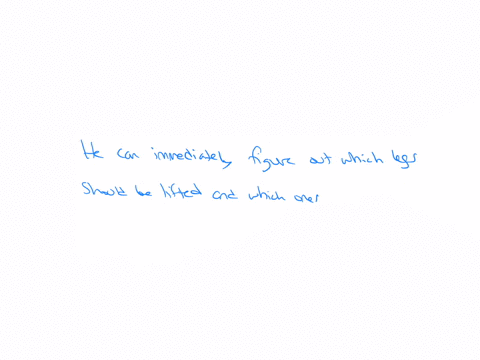 He can immediately figure out which legs
should be lifted and which ones